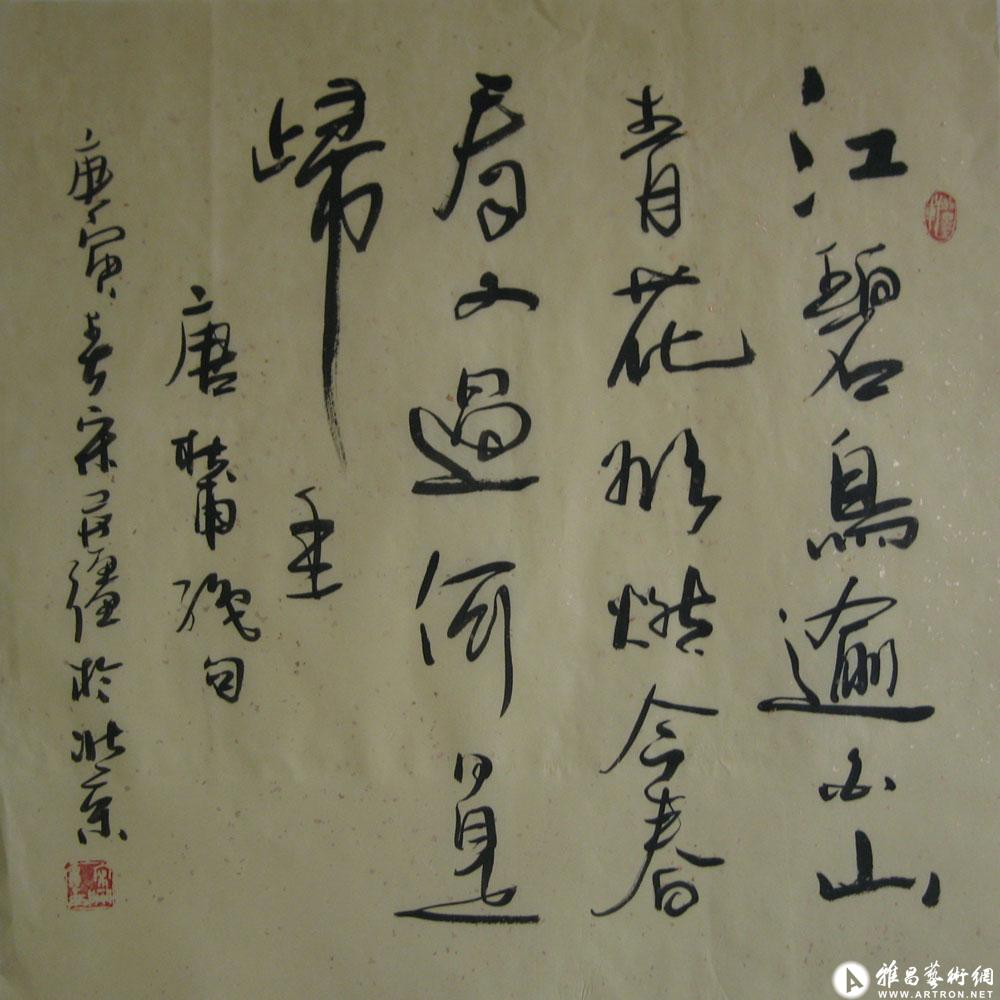 江碧鳥逾白山
青花欲燃今春
看又過何日是
歸年
唐杜甫絕句
庚寅春宋疆於北京
雅昌藝術網
WWW.ARTRON.NET